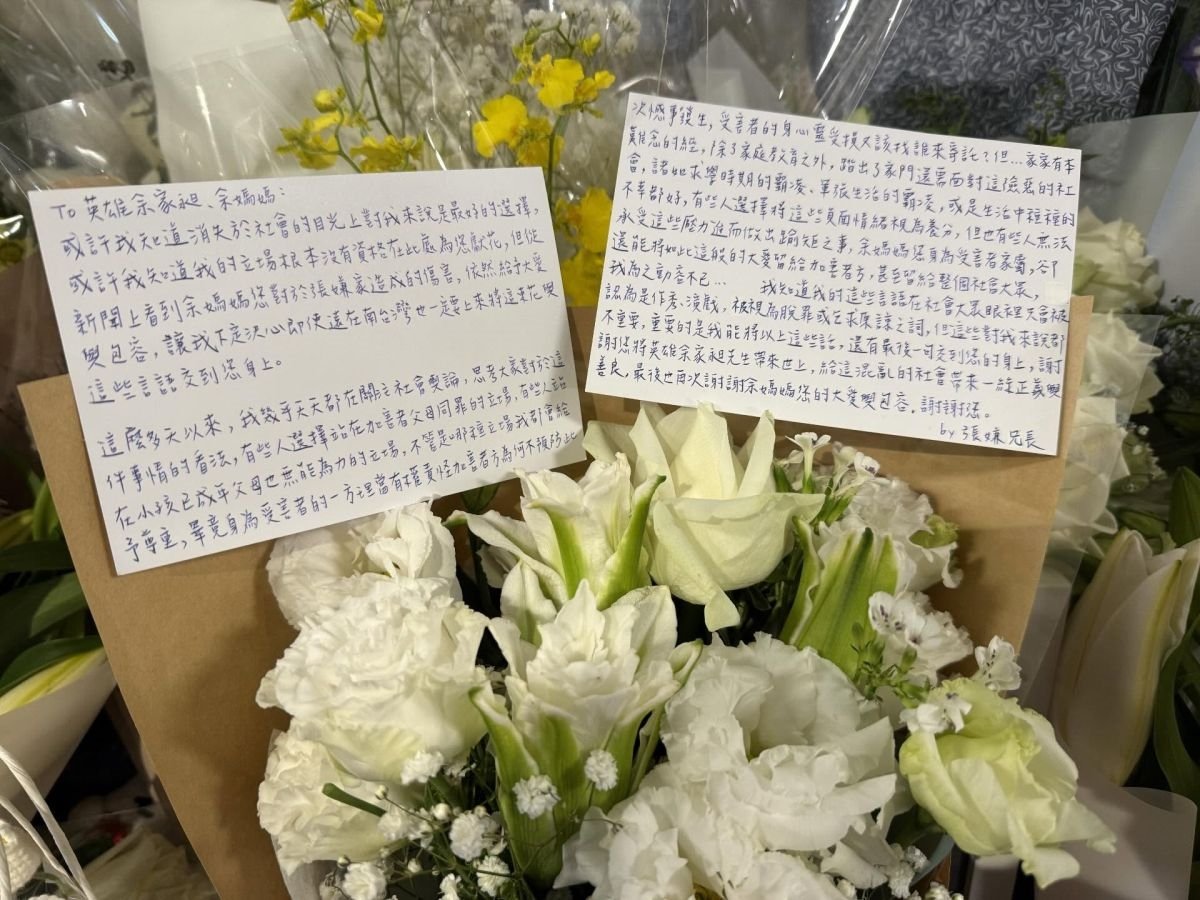 To 英雄余家昶、余媽媽：
或許我知道消失於社會的目光上對我來說是最好的選擇，
或許我知道我的立場根本沒有資格在此處為您獻花，但從
新聞上看到余媽媽您對於張嫌家造成的傷害，依然給予大愛
與包容，讓我下定決心即便遠在南台灣也一定要上來將這束花與
這些言語交到您身上。
這麼多天以來，我幾乎天天都在關注社會輿論，思考大家對於這
件事情的看法，有些人選擇站在加害者父母同罪的立場，有些人站
在小孩已成年父母也無能為力的立場，不管是哪種立場我都會給
予尊重，畢竟身為受害者的一方理當有權責怪加害者方為何不預防此
次憾事發生，受害者的身心靈受損又該找誰來寄託？但…家家有本
難念的經，除了家庭教育之外，踏出了家門還需面對這險惡的社
會，諸如求學時期的霸凌、軍旅生活的霸凌，或是生活中種種的
不幸都好，有些人選擇將這些負面情緒視為養分，但也有些人無法
承受這些壓力進而做出踰矩之事，余媽媽您身為受害者家屬，卻
還能將如此這般的大愛留給加害者方，甚至留給整個社會大眾，
我為之動容不已… 我知道我的這些言語在社會大眾眼裡只會被
認為是作秀、演戲，被視為脫罪或乞求原諒之詞，但這些對我來說都
不重要，重要的是我能將以上這些話，還有最後一句交到您的身上，謝
謝您將英雄余家昶先生帶來世上，給這混亂的社會帶來一線正義與
善良，最後也再次謝謝余媽媽您的大愛與包容，謝謝您。
by 張嫌兄長